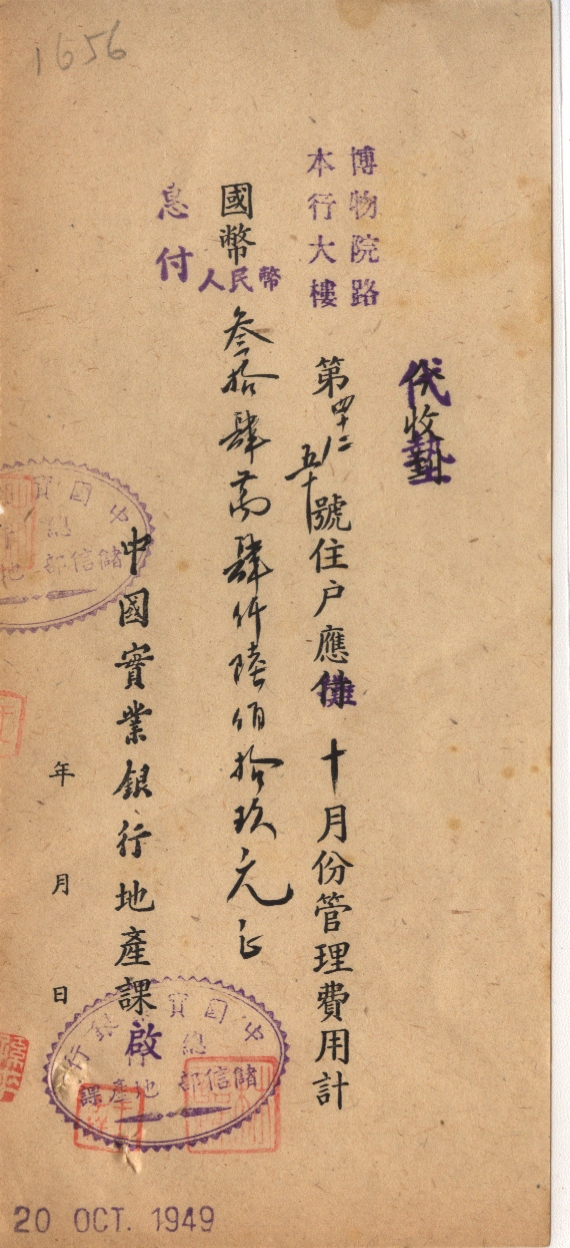 1656
代收墊
博物院路
本行大樓
第四十二/五十號住戶應攤十月份管理費用計
國幣人民幣叁拾肆萬肆仟陸佰拾玖元正
惠付
中國實業銀行地產課啟
年月日
中國實業銀行
總行
儲信部地產課
20 OCT. 1949